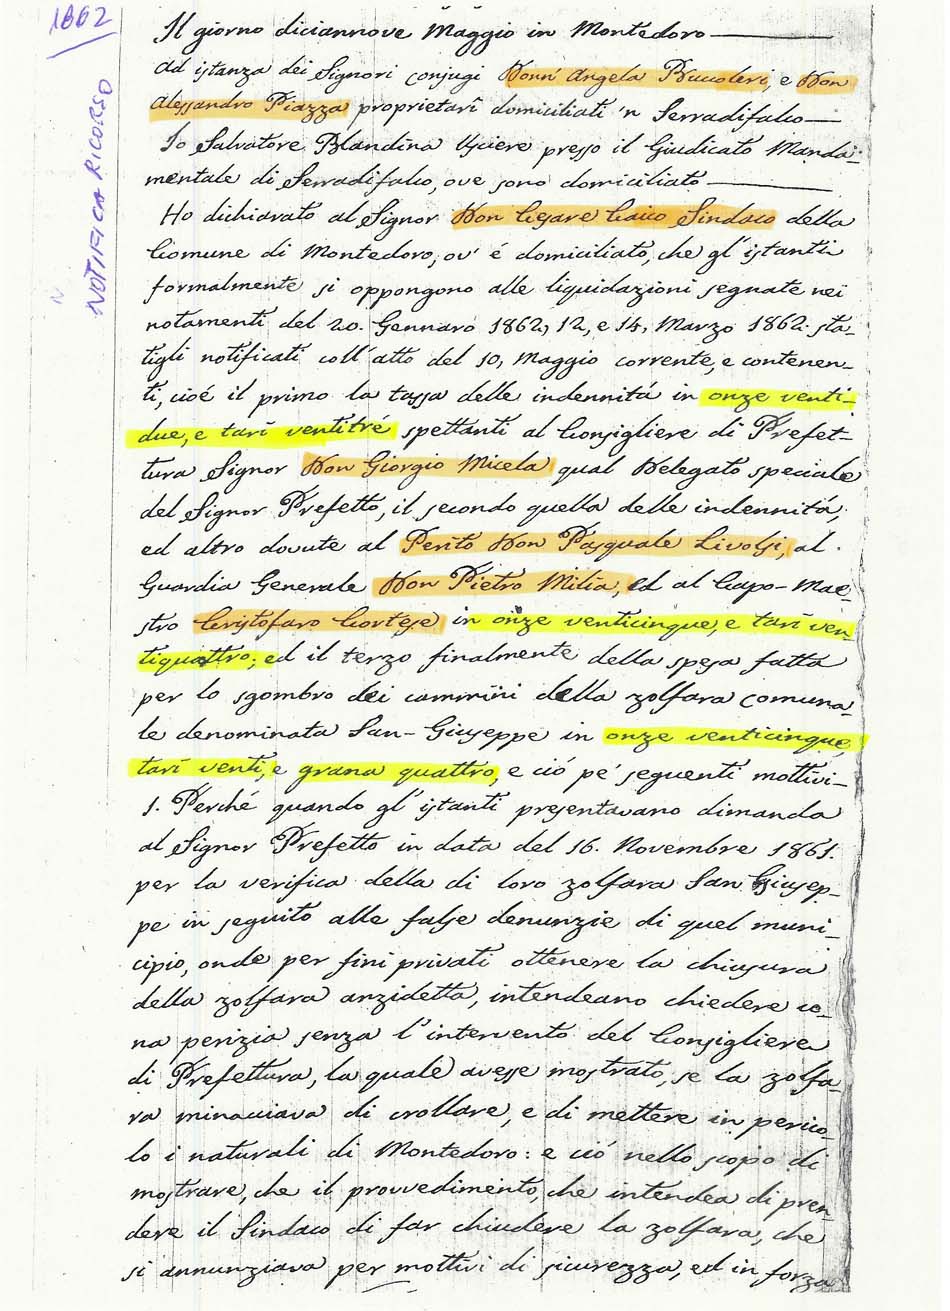 1862
NOTIFICA RICORSO
N
Il giorno diciannove Maggio in Montedoro
Ad istanza dei Signori conjugi Donn' Angela Buccoleri, e Don
Alessandro Piazza proprietarî domiciliati 'n Serradifalco
Io Salvatore Blandina Usciere presso il Giudicato Manda-
mentale di Serradifalco, ove sono domiciliato
Ho dichiarato al Signor Don Cesare Caico Sindaco della
Comune di Montedoro, ov' é domiciliato, che gl'istanti
formalmente si oppongono alle liquidazioni segnate nei
notamenti del 20. Gennaro 1862, 12, e 14, Marzo 1862. sta-
tigli notificati coll'atto del 10, Maggio corrente, e contenen-
ti, cioé il primo la tassa delle indennitá in onze venti-
due, e tarì ventitré spettanti al Consigliere di Prefet-
tura Signor Don Giorgio Micela qual Delegato speciale
del Signor Prefetto, il secondo quella delle indennitá,
ed altro dovute al Perito Don Pasquale Livolsi, al
Guardia Generale Don Pietro Milia, ed al Capo-Mae-
stro Cristofaro Cortese in onze venticinque, e tarì ven-
tiquattro, ed il terzo finalmente della spesa fatta
per lo sgombro dei cammini della zolfara comuna-
le denominata San-Giuseppe in onze venticinque,
tarì venti, e grana quattro, e ció pe' seguenti mottivi-
1. Perché quando gl'istanti presentavano dimanda
al Signor Prefetto in data del 16. Novembre 1861.
per la verifica della di loro zolfara San Giusep-
pe in seguito alle false denunzie di quel muni-
cipio, onde per fini privati ottenere la chiusura
della zolfara anzidetta, intendeano chiedere u-
na perizia senza l'intervento del Consigliere
di Prefettura, la quale avesse mostrato, se la zolfa-
ra minacciava di crollare, e di mettere in perico-
lo i naturali di Montedoro: e ció nello scopo di
mostrare, che il provvedimento, che intendea di pren-
dere il Sindaco di far chiudere la zolfara, che
si annunziava per mottivi di sicurezza, ed in forza